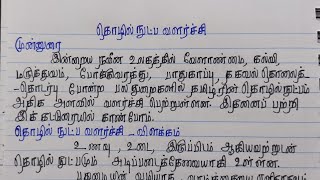 தொழில் நுட்ப வளர்ச்சி
முன்னுரை
இன்றைய நவீன உலகத்தில் வேளாண்மை, கல்வி
மருத்துவம், போக்குவரத்து, பாதுகாப்பு, தகவல் தொலைத்-
தொடர்பு போன்ற பல துறைகளில் தமிழரின் தொழில்நுட்பம்
அதிக அளவில் வளர்ச்சி பெற்றுள்ளன. இதனைப் பற்றி
இக் கட்டுரையில் காண்போம்.
தொழில் நுட்ப வளர்ச்சி - விளக்கம்
உணவு, உடை, இருப்பிடம் ஆகியவற்றுடன்
தொழில் நுட்பமும் அடிப்படைத்தேவையாகி உள்ளன.